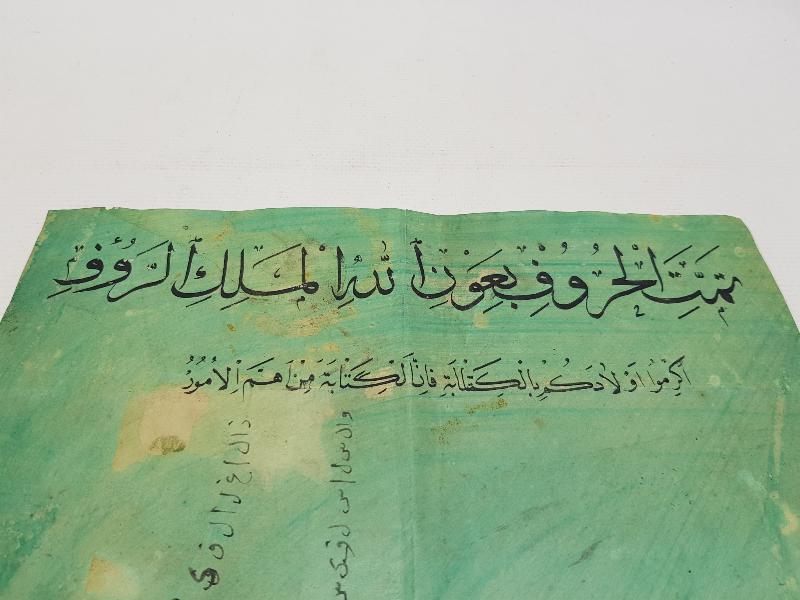 تمت الحروف بعون الله الملك الرؤف
اكرموا اولادكم بالكتابة فان الكتابة من اهم الامور